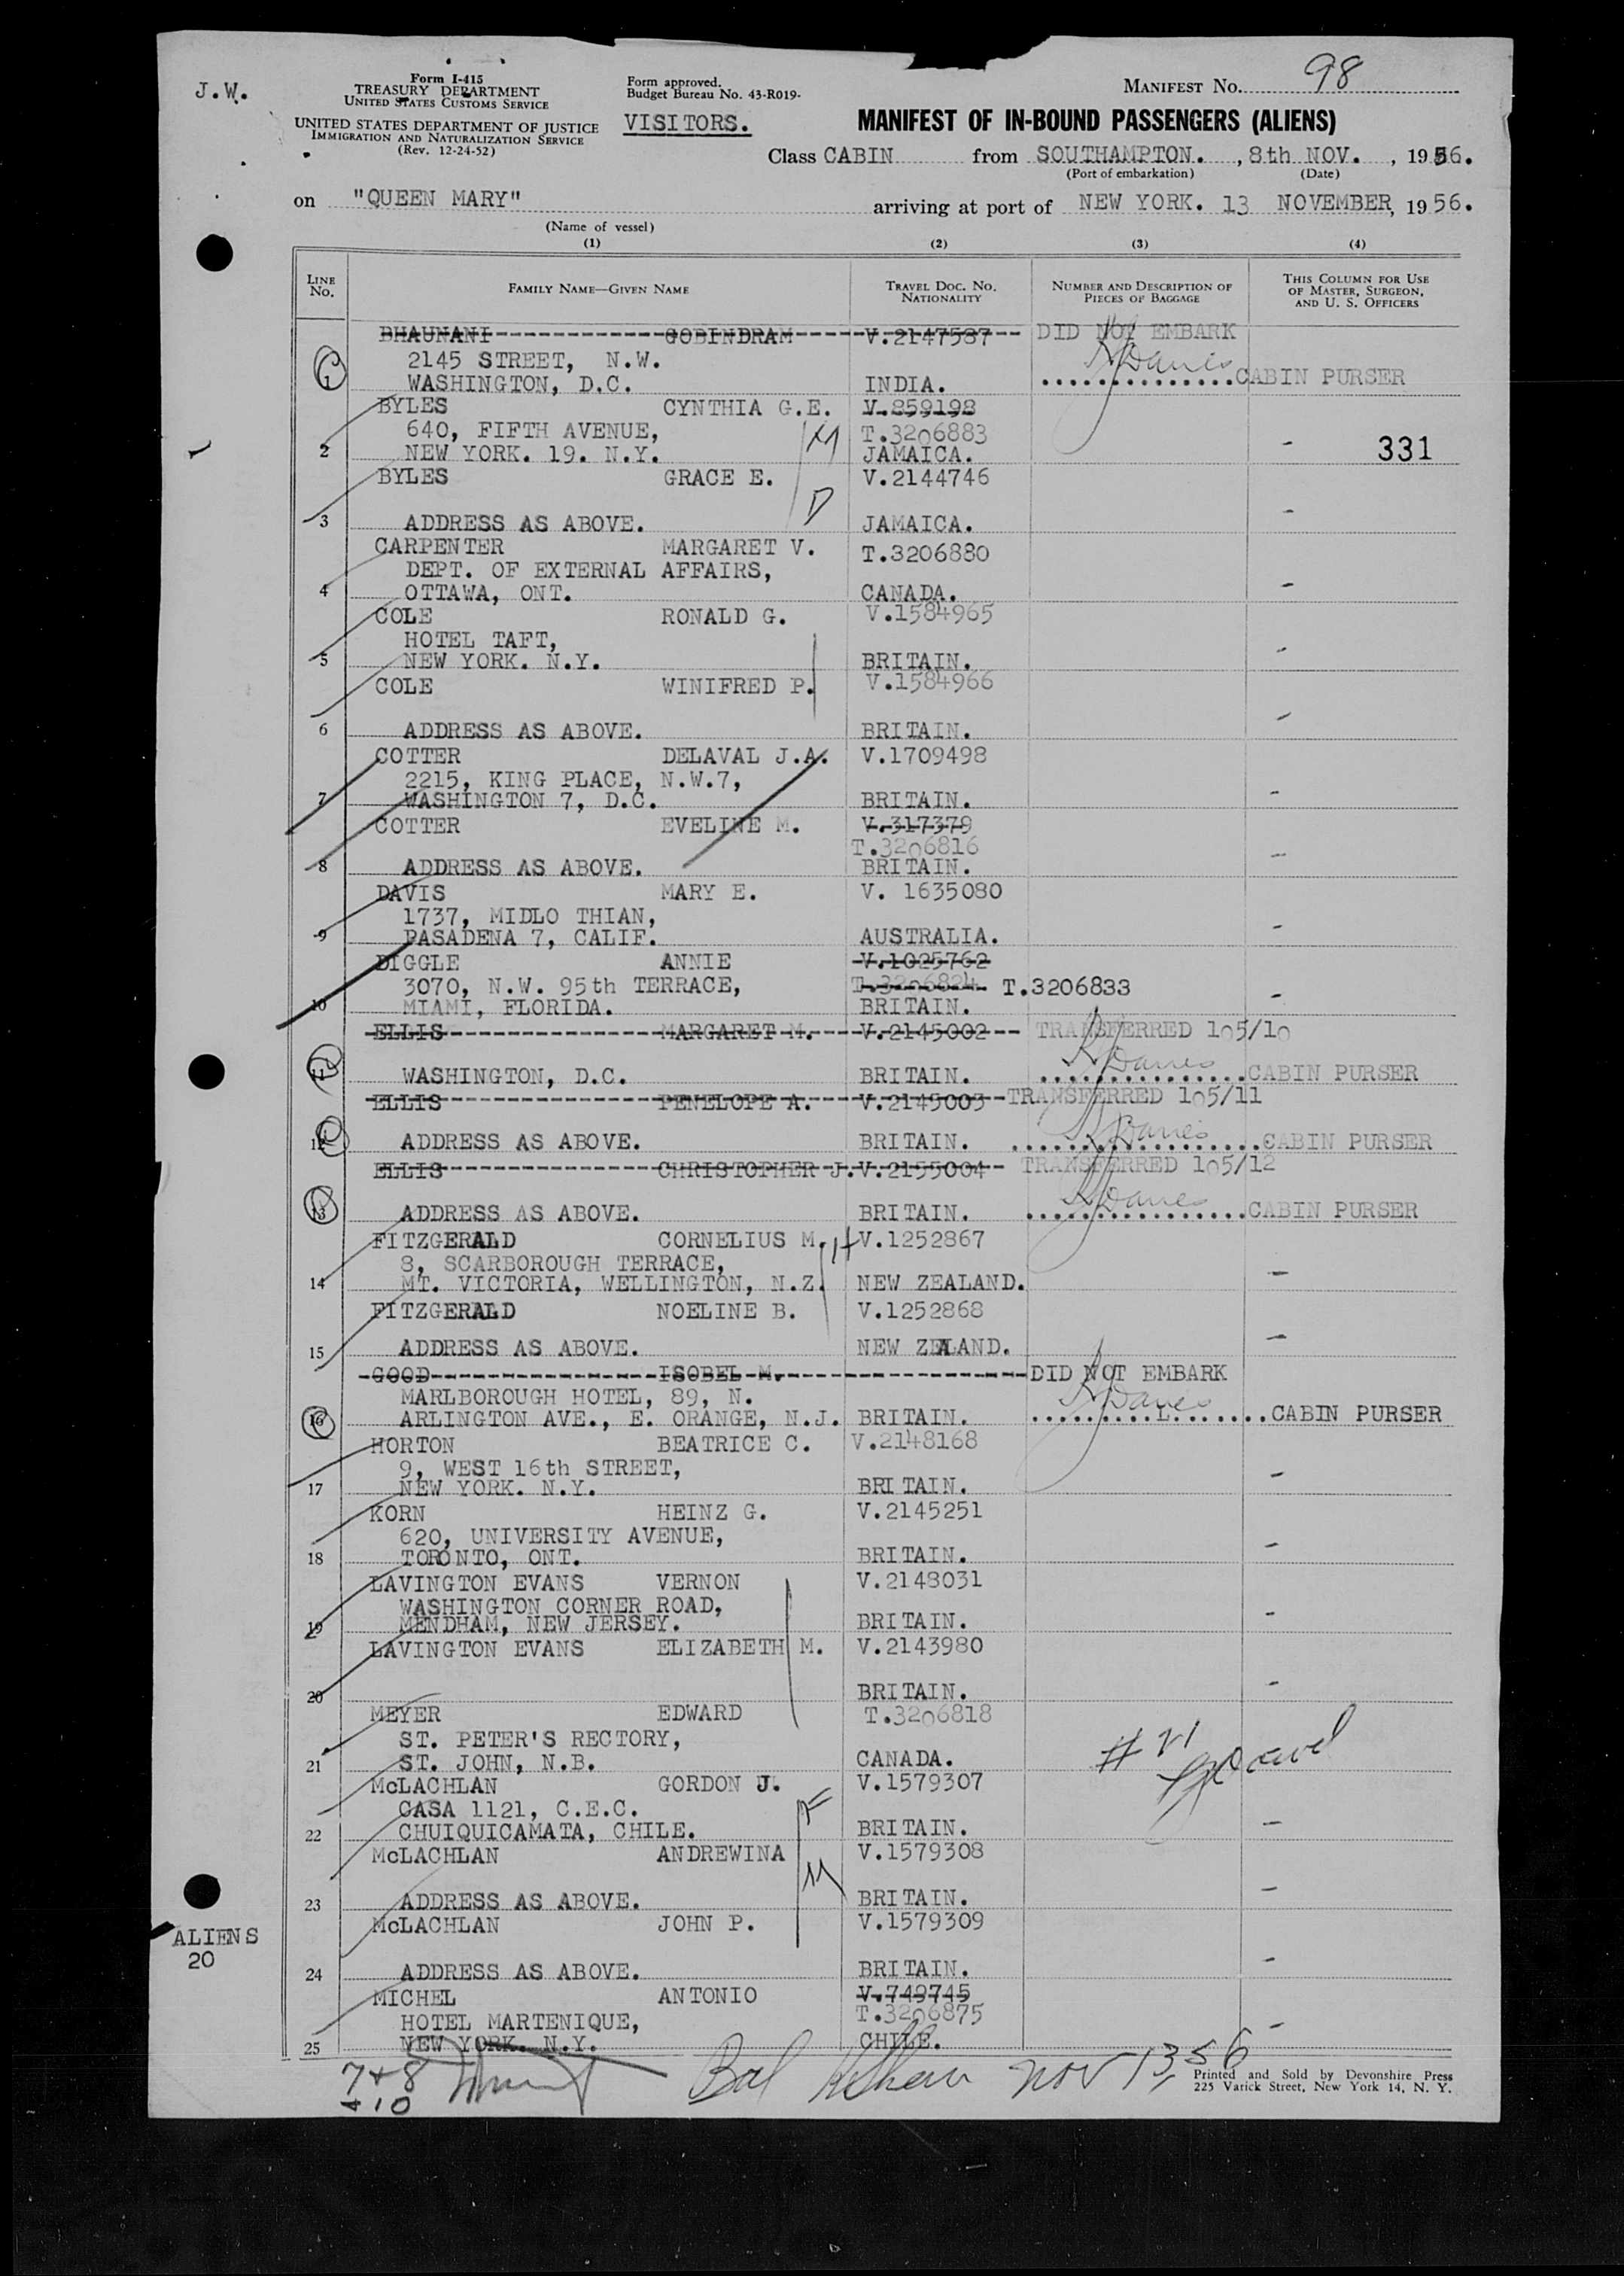 J.W.
Form I-415
TREASURY DEPARTMENT
UNITED STATES CUSTOMS SERVICE
UNITED STATES DEPARTMENT OF JUSTICE
IMMIGRATION AND NATURALIZATION SERVICE
(Rev. 12-24-52)
Form approved.
Budget Bureau No. 43-R019-
VISITORS.
MANIFEST NO. 98
MANIFEST OF IN-BOUND PASSENGERS (ALIENS)
Class CABIN from SOUTHAMPTON. , 8th NOV. , 1956.
(Port of embarkation) (Date)
on "QUEEN MARY" arriving at port of NEW YORK. 13 NOVEMBER, 1956.
(Name of vessel)
(1) (2) (3) (4)
LINE NO. FAMILY NAME—GIVEN NAME TRAVEL DOC. NO. NATIONALITY NUMBER AND DESCRIPTION OF PIECES OF BAGGAGE THIS COLUMN FOR USE OF MASTER, SURGEON, AND U. S. OFFICERS
BHAUNANI GOBINDRAM V.2147587 DID NOT EMBARK
2145 STREET, N.W.
1 WASHINGTON, D.C. INDIA. CABIN PURSER
BYLES CYNTHIA G.E. V.859198
640, FIFTH AVENUE, M T.3206883
2 NEW YORK. 19. N.Y. JAMAICA. - 331
BYLES GRACE E. V.2144746
D
3 ADDRESS AS ABOVE. JAMAICA. -
CARPENTER MARGARET V. T.3206880
DEPT. OF EXTERNAL AFFAIRS,
4 OTTAWA, ONT. CANADA. -
COLE RONALD G. V.1584965
HOTEL TAFT,
5 NEW YORK. N.Y. BRITAIN. -
COLE WINIFRED P. V.1584966
6 ADDRESS AS ABOVE. BRITAIN. -
COTTER DELAVAL J.A. V.1709498
2215, KING PLACE, N.W.7,
7 WASHINGTON 7, D.C. BRITAIN. -
COTTER EVELINE M. V.317379
T.3206816
8 ADDRESS AS ABOVE. BRITAIN. -
DAVIS MARY E. V. 1635080
1737, MIDLO THIAN,
9 PASADENA 7, CALIF. AUSTRALIA. -
DIGGLE ANNIE V.1025762
3070, N.W. 95th TERRACE, T.3206824 T.3206833
10 MIAMI, FLORIDA. BRITAIN. -
ELLIS MARGARET M. V.2145002 TRANSFERRED 105/10
11 WASHINGTON, D.C. BRITAIN. CABIN PURSER
ELLIS PENELOPE A. V.2145003 TRANSFERRED 105/11
12 ADDRESS AS ABOVE. BRITAIN. CABIN PURSER
ELLIS CHRISTOPHER J. V.2155004 TRANSFERRED 105/12
13 ADDRESS AS ABOVE. BRITAIN. CABIN PURSER
FITZGERALD CORNELIUS M. H V.1252867
8, SCARBOROUGH TERRACE,
14 MT. VICTORIA, WELLINGTON, N.Z. NEW ZEALAND. -
FITZGERALD NOELINE B. V.1252868
15 ADDRESS AS ABOVE. NEW ZEALAND. -
GOOD ISOBEL M. DID NOT EMBARK
MARLBOROUGH HOTEL, 89, N.
16 ARLINGTON AVE., E. ORANGE, N.J. BRITAIN. CABIN PURSER
HORTON BEATRICE C. V.2148168
9, WEST 16th STREET,
17 NEW YORK. N.Y. BRITAIN. -
KORN HEINZ G. V.2145251
620, UNIVERSITY AVENUE,
18 TORONTO, ONT. BRITAIN. -
LAVINGTON EVANS VERNON V.2148031
WASHINGTON CORNER ROAD,
19 MENDHAM, NEW JERSEY. BRITAIN. -
LAVINGTON EVANS ELIZABETH M. V.2143980
20 BRITAIN. -
MEYER EDWARD T.3206818
ST. PETER'S RECTORY,
21 ST. JOHN, N.B. CANADA. # 21
McLACHLAN GORDON J. V.1579307
CASA 1121, C.E.C. F
22 CHUIQUICAMATA, CHILE. BRITAIN. -
McLACHLAN ANDREWINA V.1579308
M
23 ADDRESS AS ABOVE. BRITAIN. -
McLACHLAN JOHN P. V.1579309
ALIENS
20
24 ADDRESS AS ABOVE. BRITAIN. -
MICHEL ANTONIO V.749745
HOTEL MARTENIQUE, T.3206875
25 NEW YORK. N.Y. CHILE. -
7+8
+10
Bal Nov 13, 56
Printed and Sold by Devonshire Press
225 Varick Street, New York 14, N. Y.